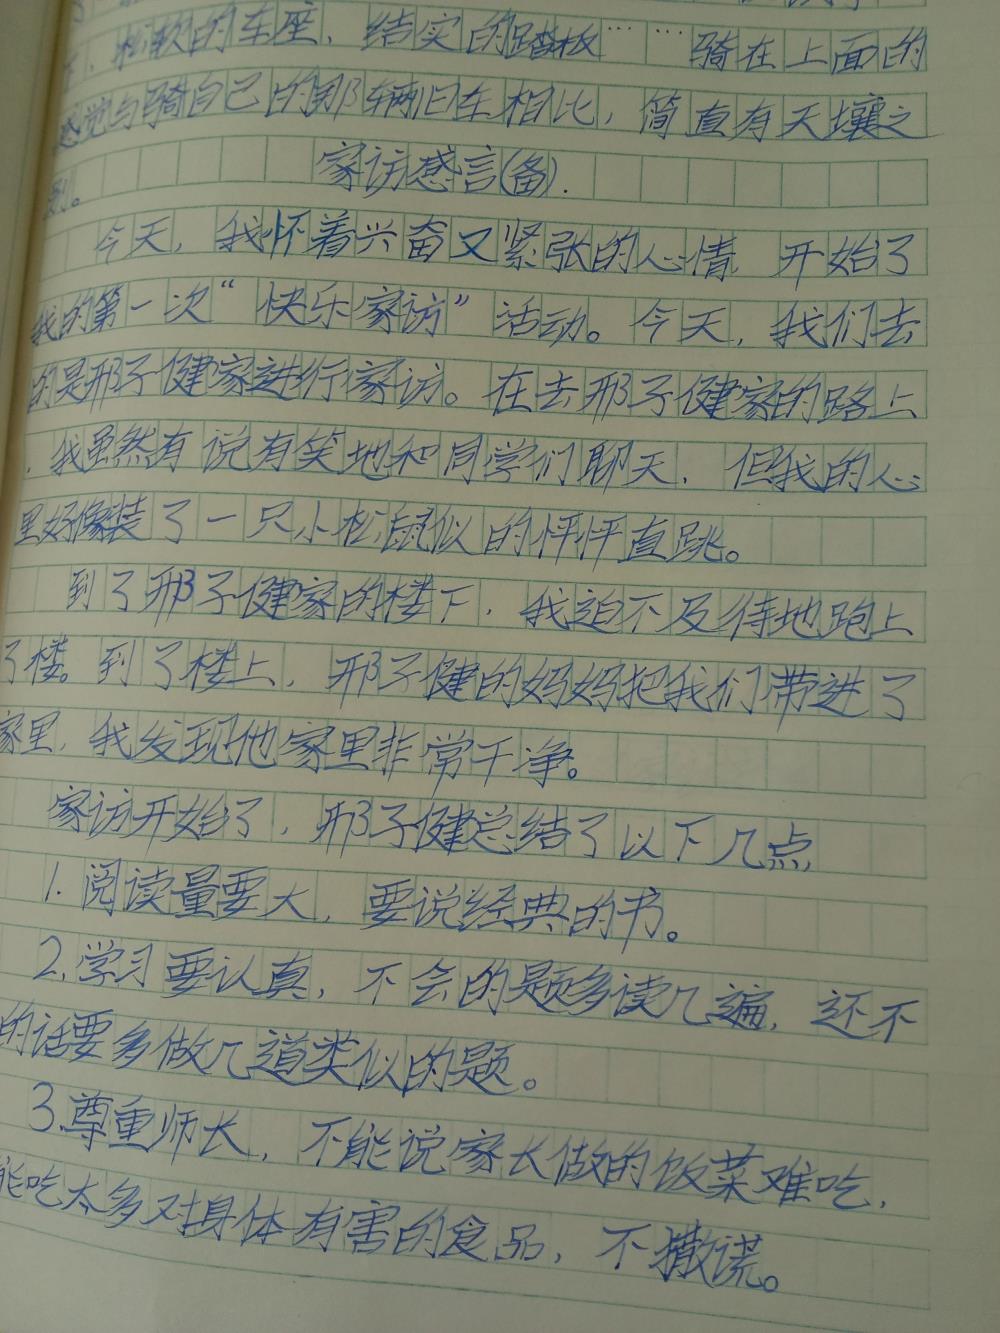 、松软的车座、结实的踏板……骑在上面的
感觉与骑自己的那辆旧车相比，简直有天壤之
别。
家访感言(备).
今天，我怀着兴奋又紧张的心情 开始了
我的第一次“快乐家访”活动。今天，我们去
的是邢子健家进行家访。在去邢子健家的路上
，我虽然有说有笑地和同学们聊天，但我的心
里好像装了一只小松鼠似的怦怦直跳。
到了邢子健家的楼下，我迫不及待地跑上
了楼。到了楼上，邢子健的妈妈把我们带进了
家里，我发现他家里非常干净。
家访开始了，邢子健总结了以下几点
1.阅读量要大，要说经典的书。
2.学习要认真，不会的题多读几遍，还不
的话要多做几道类似的题。
3.尊重师长，不能说家长做的饭菜难吃，
能吃太多对身体有害的食品，不撒谎。